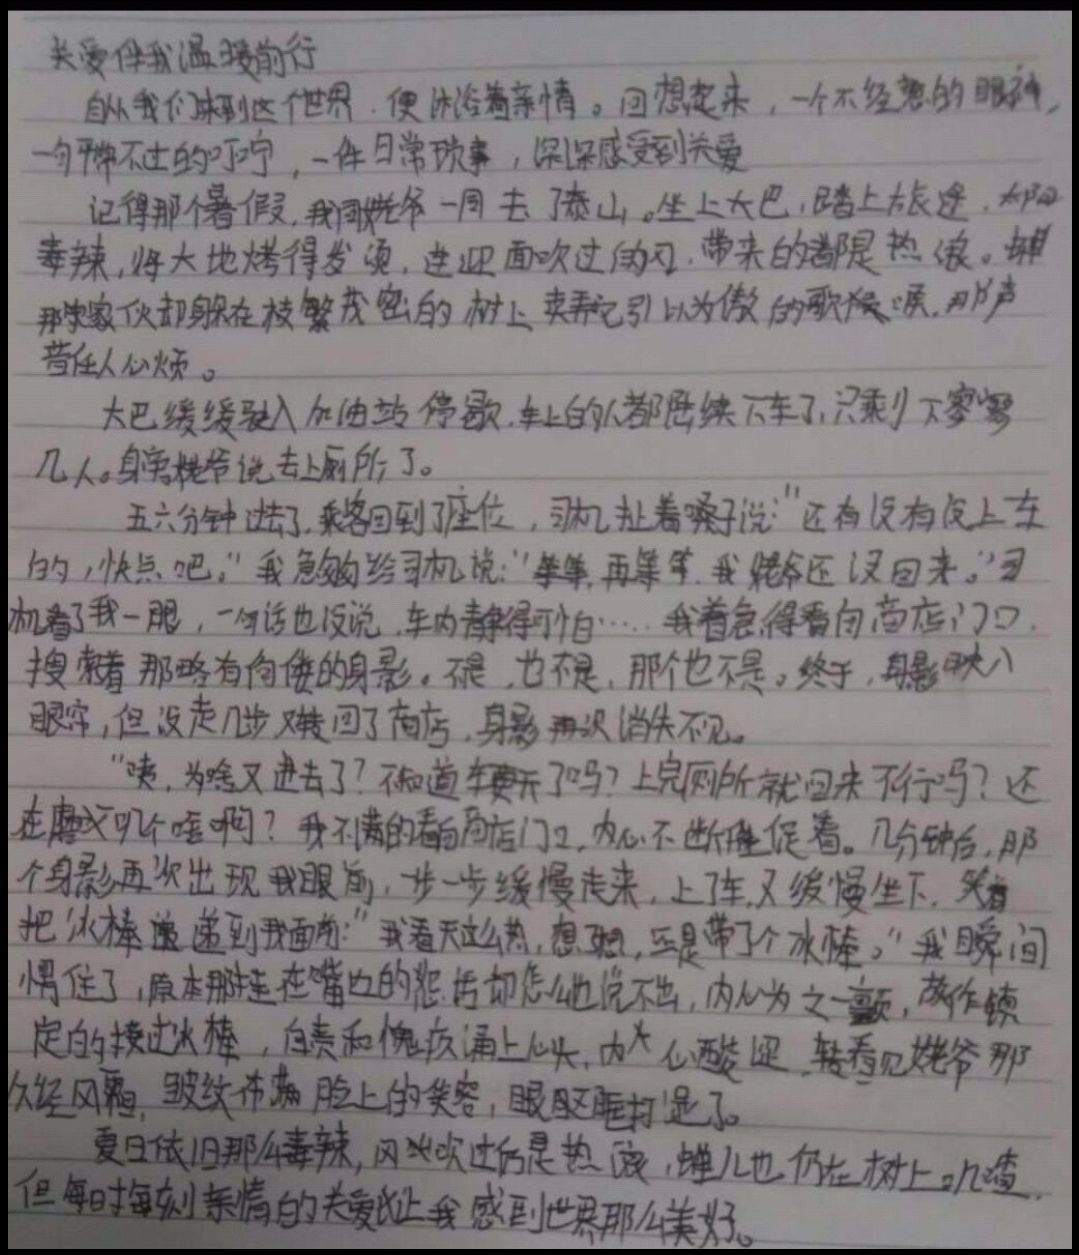 关爱伴我温暖前行
自从我们来到这个世界,便沐浴着亲情。回想起来,一个不经意的眼神,
一句平常不过的叮咛,一件日常琐事,深深感受到关爱
记得那个暑假,我同姥爷一同去了泰山。坐上大巴,踏上旅途,太阳
毒辣,将大地烤得发烫,迎面吹过的风,带来的都是热浪。蝉
那家伙却躲在枝繁茂密的树上卖弄它引以为傲的歌喉,那声
音任人心烦。
大巴缓缓驶入加油站停歇,车上的人都陆续下车了,只剩下寥寥
几人。身旁姥爷说去上厕所了。
五六分钟过去了,乘客回到了座位,司机扯着嗓子说:"还有没有没上车
的,快点吧。"我急匆匆给司机说:"等等,再等等,我姥爷还没回来。"司
机看了我一眼,一句话也没说,车内静得可怕……我着急得看向商店门口,
搜索着那略有佝偻的身影。不是,也不是,那个也不是。终于,身影映入
眼帘,但没走几步又转回了商店,身影再次消失不见。
"咦,为啥又进去了?不知道车要开了吗?上完厕所就回来不行吗?还
在磨叽个啥啊?我不满的看向商店门口,内心不断催促着。几分钟后,那
个身影再次出现我眼前,一步一步缓慢走来,上了车,又缓慢坐下,笑着
把冰棒递到我面前:"我看天这么热,想想,还是带了个冰棒。"我瞬间
愣住了,原本那挂在嘴边的怨言却怎么也说不出,内心为之一颤,故作镇
定的接过冰棒,自责和愧疚涌上心头,内心酸涩,转看见姥爷那
久经风霜,皱纹布满脸上的笑容,眼眶打湿了。
夏日依旧那么毒辣,风吹过仍是热浪,蝉儿也仍在树上叽喳,
但每时每刻亲情的关爱让我感到世界那么美好。